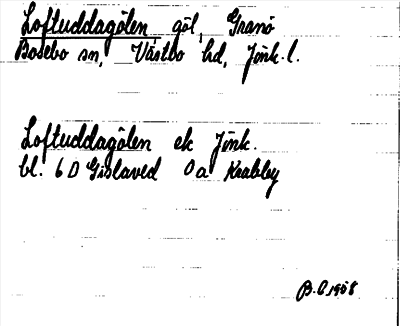 Loftuddagölen göl, Granö
Bosebo sn, Västbo hd, Jönk.l.
Loftuddagölen ek Jönk.
bl. 6 D Gislaved 0a Krabby
B.C 1968